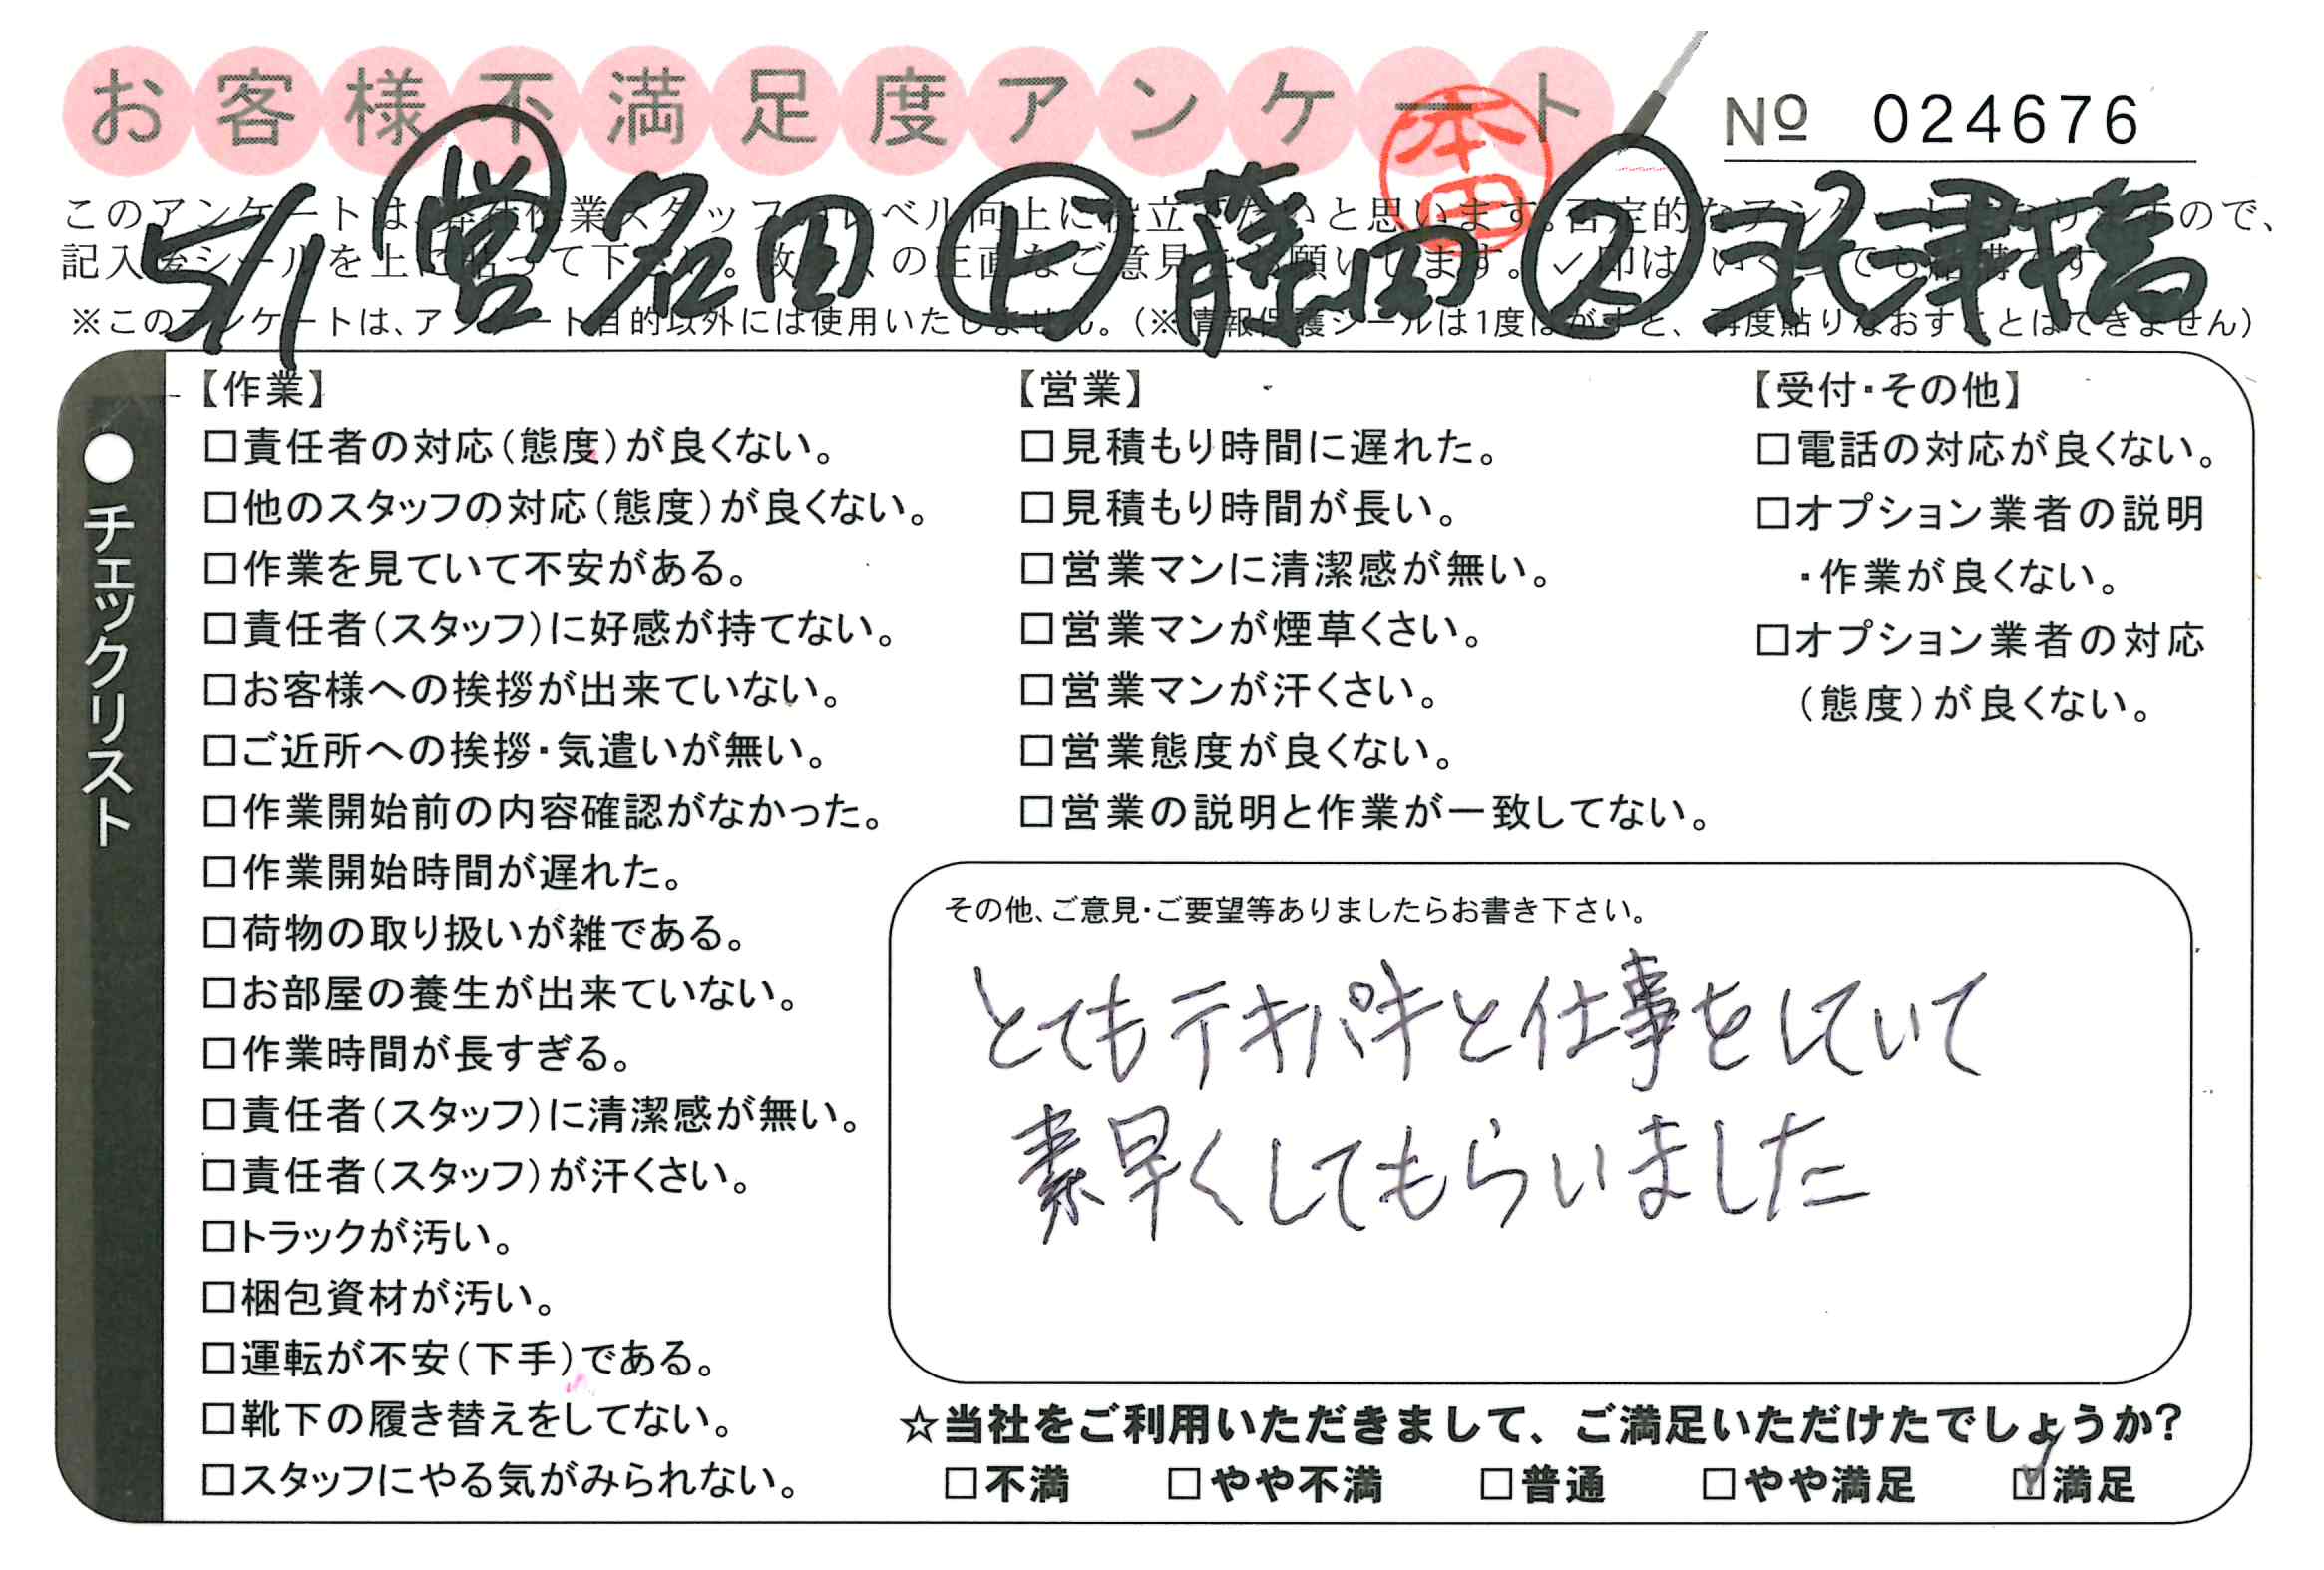 お客様不満足度アンケート
本田
№ 024676
5/1 営 名田 上 藤田 ス
このアンケートは、作業スタッフレベル向上に役立てたいと思います。否定的なアンケートので、
記入後シールを上に貼って下の正直なご意見お願いします。✓印はいくつでも結構です
※このアンケートは、アンケート目的以外には使用いたしません。(※情報保護シールは1度はがすと、再度貼りなおすことはできません)
●チェックリスト
【作業】
□責任者の対応(態度)が良くない。
□他のスタッフの対応(態度)が良くない。
□作業を見ていて不安がある。
□責任者(スタッフ)に好感が持てない。
□お客様への挨拶が出来ていない。
□ご近所への挨拶・気遣いが無い。
□作業開始前の内容確認がなかった。
□作業開始時間が遅れた。
□荷物の取り扱いが雑である。
□お部屋の養生が出来ていない。
□作業時間が長すぎる。
□責任者(スタッフ)に清潔感が無い。
□責任者(スタッフ)が汗くさい。
□トラックが汚い。
□梱包資材が汚い。
□運転が不安(下手)である。
□靴下の履き替えをしてない。
□スタッフにやる気がみられない。
【営業】
□見積もり時間に遅れた。
□見積もり時間が長い。
□営業マンに清潔感が無い。
□営業マンが煙草くさい。
□営業マンが汗くさい。
□営業態度が良くない。
□営業の説明と作業が一致してない。
【受付・その他】
□電話の対応が良くない。
□オプション業者の説明
・作業が良くない。
□オプション業者の対応
(態度)が良くない。
その他、ご意見・ご要望等ありましたらお書き下さい。
とてもテキパキと仕事をしていて
素早くしてもらいました
☆当社をご利用いただきまして、ご満足いただけたでしょうか?
□不満 □やや不満 □普通 □やや満足 ☑満足